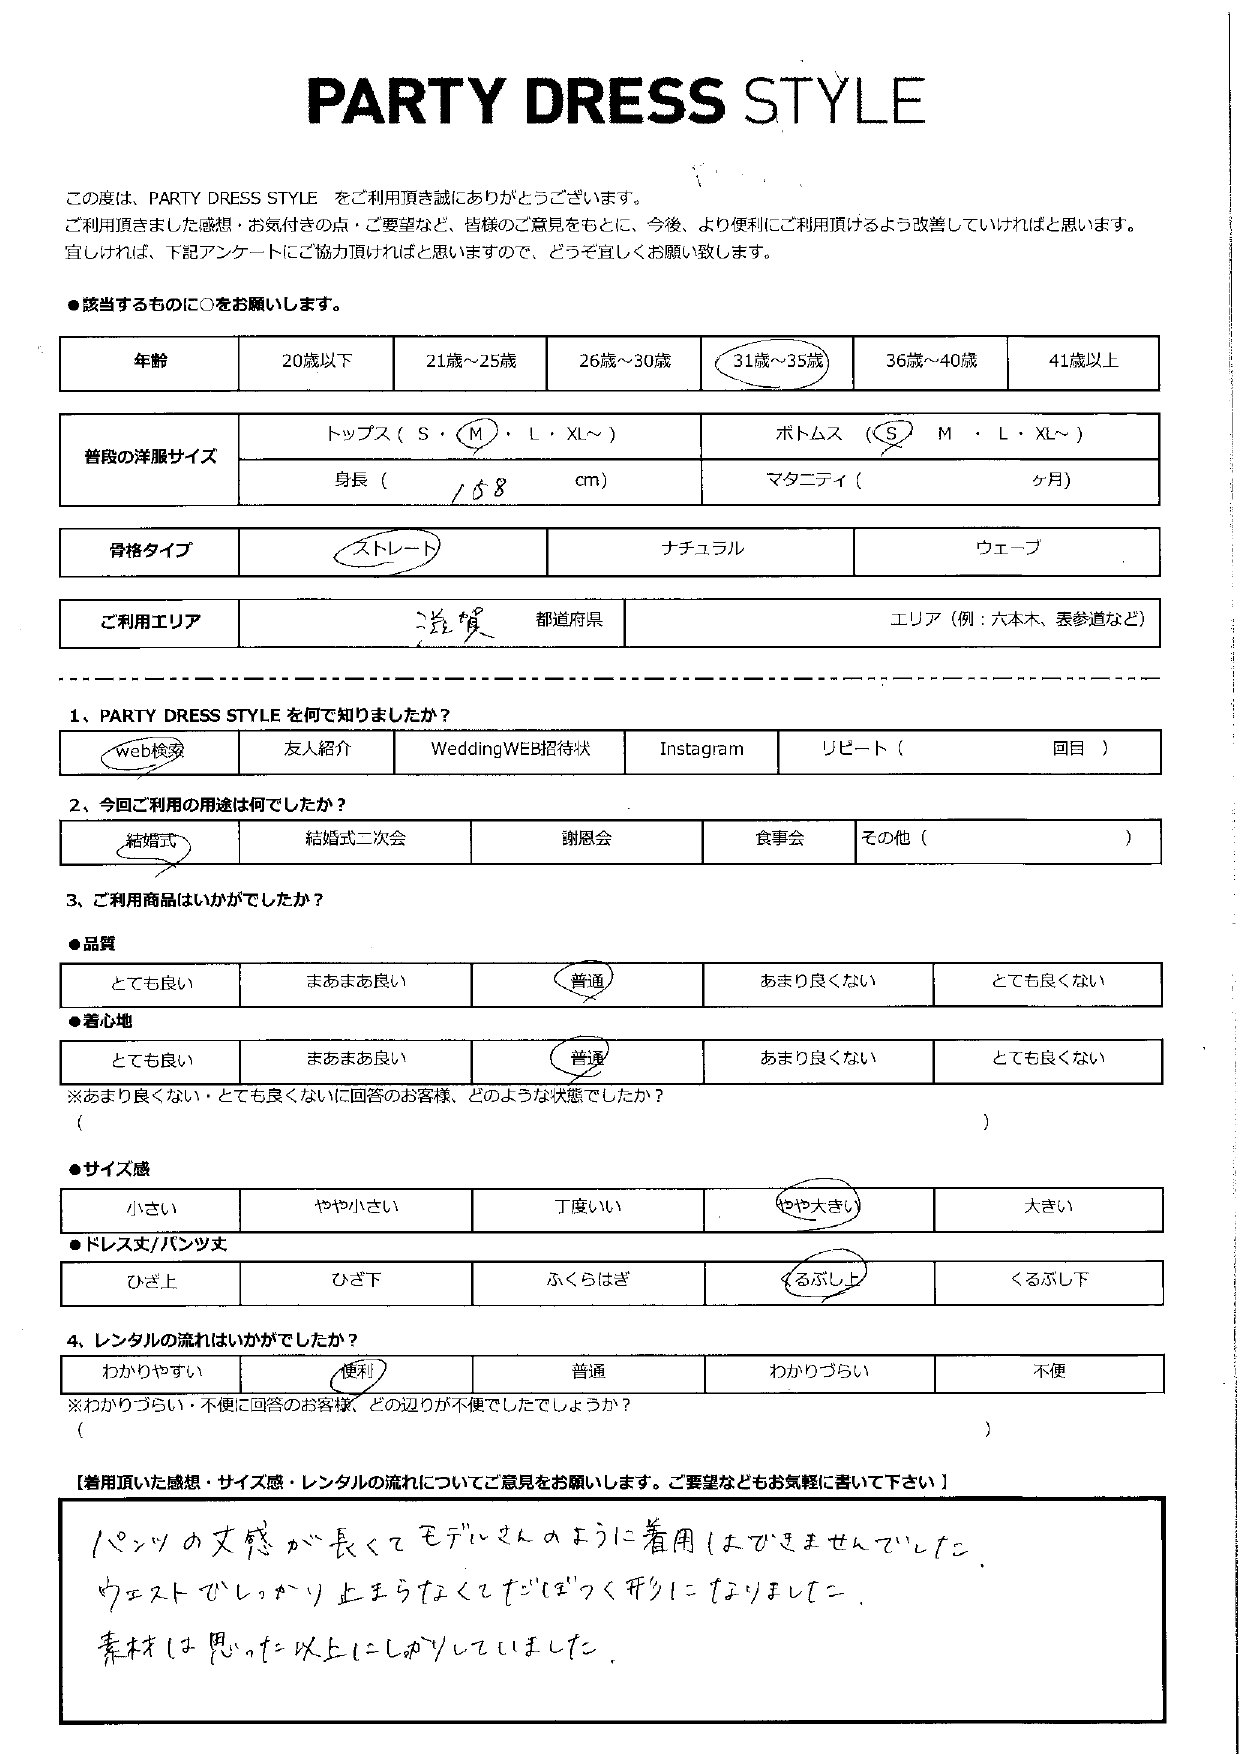 PARTY DRESS STYLE
この度は、PARTY DRESS STYLE をご利用頂き誠にありがとうございます。
ご利用頂きました感想・お気付きの点・ご要望など、皆様のご意見をもとに、今後、より便利にご利用頂けるよう改善していければと思います。
宜しければ、下記アンケートにご協力頂ければと思いますので、どうぞ宜しくお願い致します。
●該当するものに○をお願いします。
年齢 20歳以下 21歳～25歳 26歳～30歳 31歳～35歳 36歳～40歳 41歳以上
普段の洋服サイズ トップス ( S ・ M ・ L ・ XL～ ) ボトムス ( S M ・ L ・ XL～ )
身長 ( 158 cm) マタニティ ( ヶ月)
骨格タイプ ストレート ナチュラル ウェーブ
ご利用エリア 滋賀 都道府県 エリア（例：六本木、表参道など）
1、PARTY DRESS STYLE を何で知りましたか？
web検索 友人紹介 WeddingWEB招待状 Instagram リピート ( 回目 )
2、今回ご利用の用途は何でしたか？
結婚式 結婚式二次会 謝恩会 食事会 その他 ( )
3、ご利用商品はいかがでしたか？
●品質
とても良い まあまあ良い 普通 あまり良くない とても良くない
●着心地
とても良い まあまあ良い 普通 あまり良くない とても良くない
※あまり良くない・とても良くないに回答のお客様、どのような状態でしたか？
( )
●サイズ感
小さい やや小さい 丁度いい やや大きい 大きい
●ドレス丈/パンツ丈
ひざ上 ひざ下 ふくらはぎ くるぶし上 くるぶし下
4、レンタルの流れはいかがでしたか？
わかりやすい 便利 普通 わかりづらい 不便
※わかりづらい・不便に回答のお客様、どの辺りが不便でしたでしょうか？
( )
【着用頂いた感想・サイズ感・レンタルの流れについてご意見をお願いします。ご要望などもお気軽に書いて下さい 】
パンツの丈感が長くてモデルさんのように着用はできませんでした．
ウエストでしっかり止まらなくてだぼつく形になりました．
素材は思った以上にしっかりしていました．